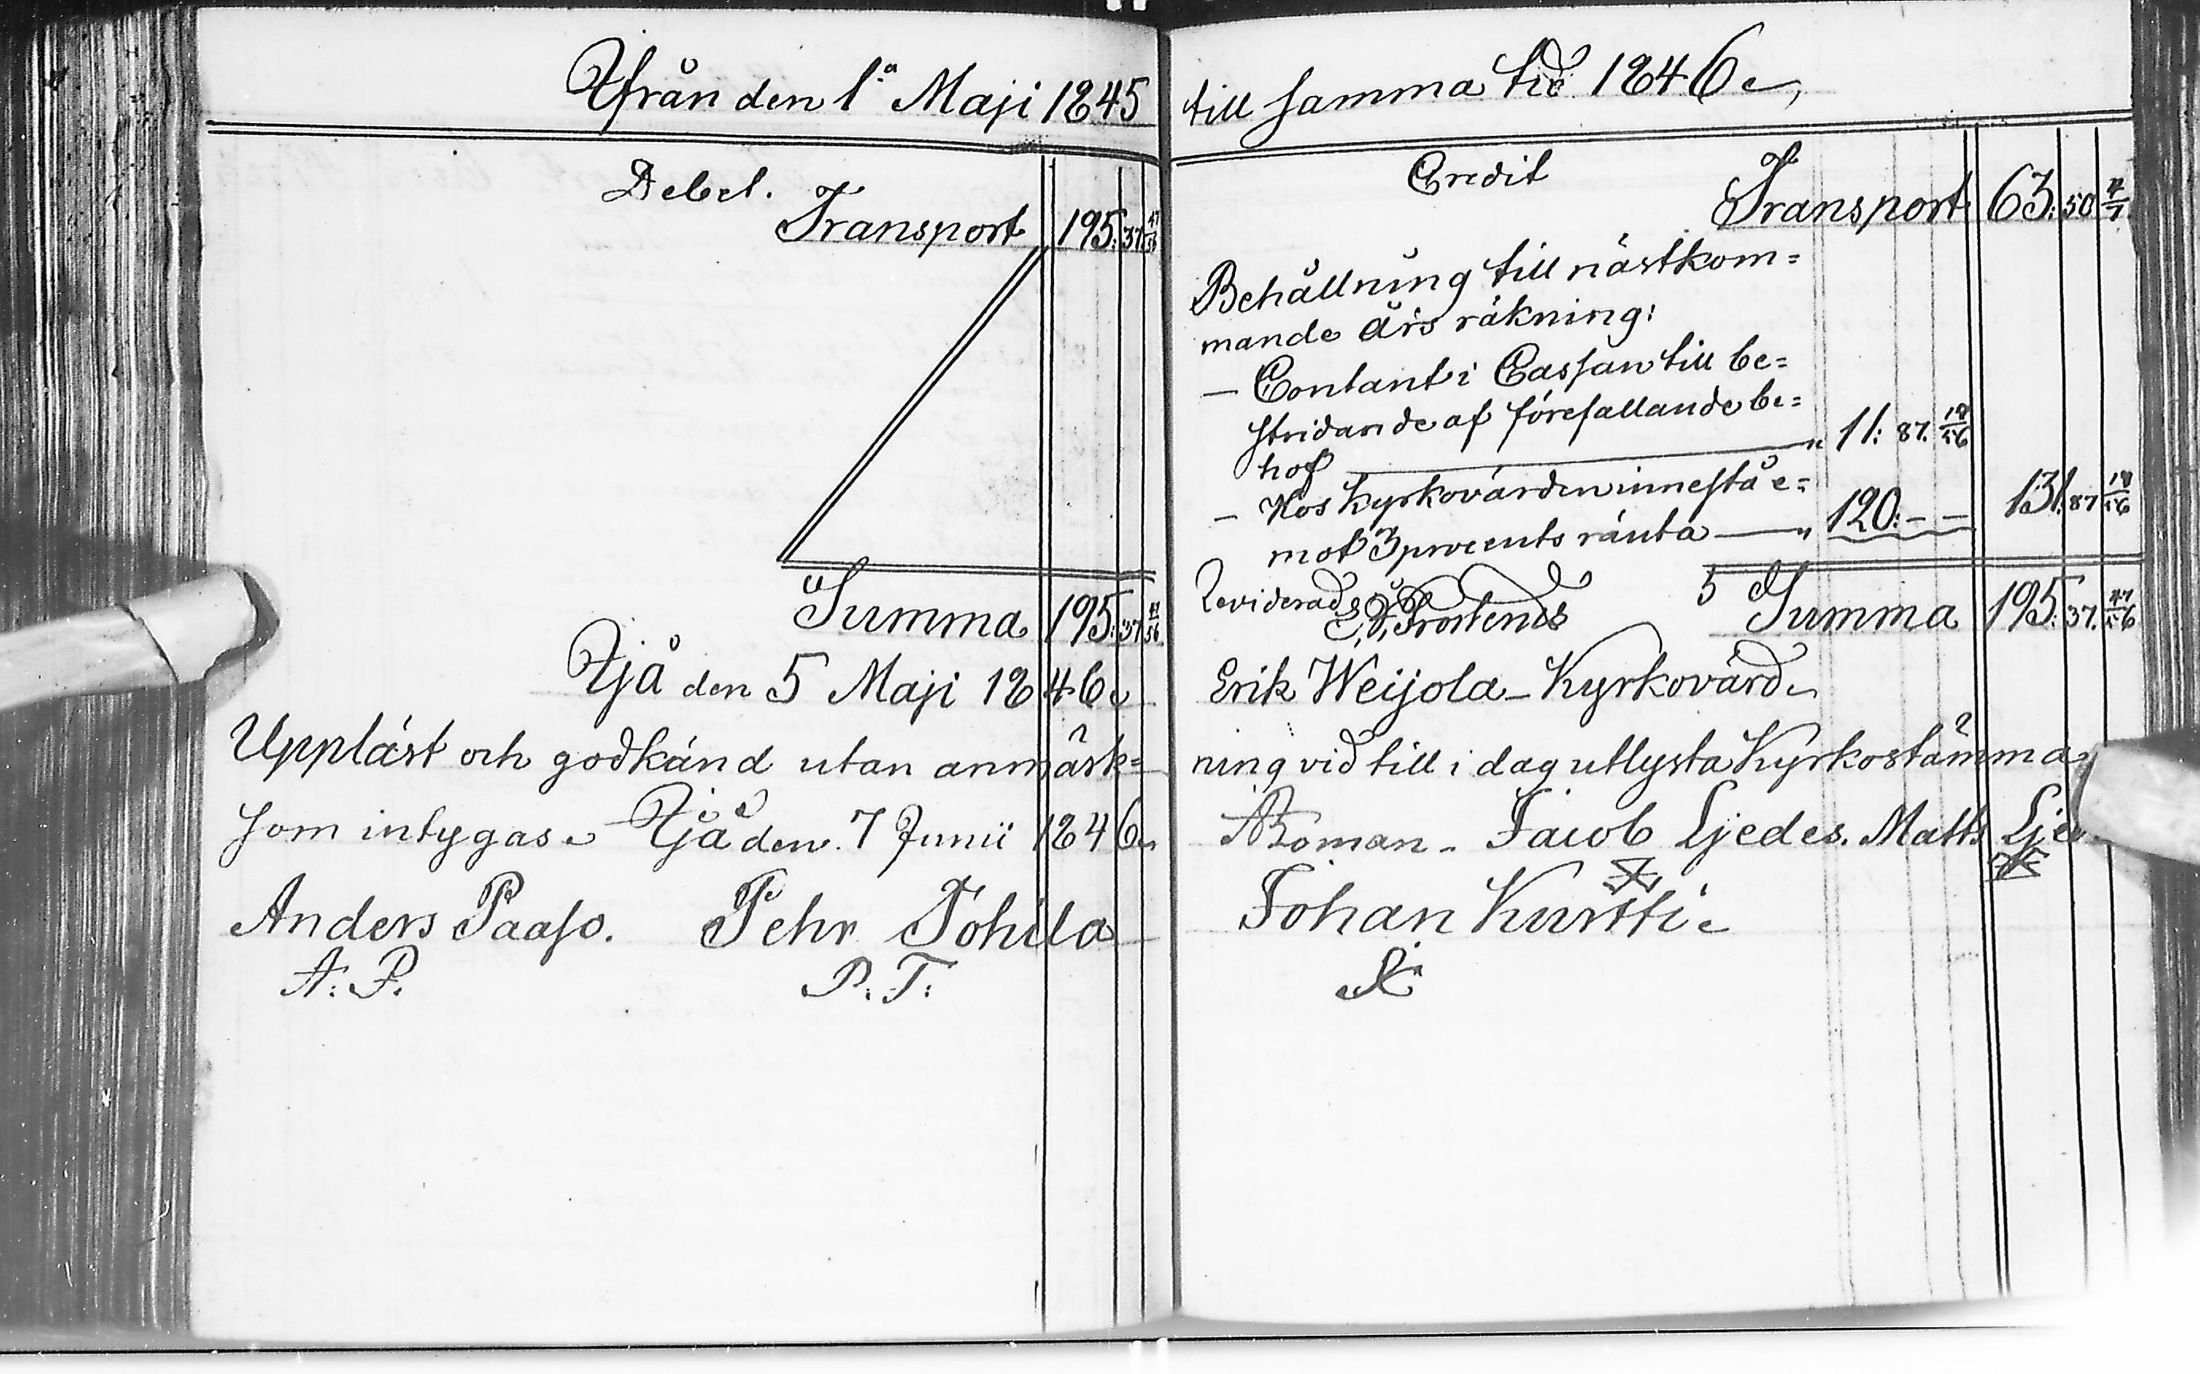 Ifrån den 1:a Maji 1845
Debet.
Transport 195: 37 47/56
Summa 195: 37 47/56
Yjå den 5 Maji 1846
Uppläst och godkänd utan anmärk=
som intygas Yjå den 7 Junii 1846
Anders Paaso. Pehr Tohila
A: P. P: T:
till samma tid 1846
Credit
Transport 63: 50 4/7
Behållning till nästkom=
mande års räkning:
— Contant i Cassan till be=
stridande af förefallande be=
hof — " 11: 87. 18/56
— Hos Kyrkovärden innestå e=
mot 3 procents ränta — " 120: — — 131: 87 18/56
Reviderad Frosterus
Summa 195: 37. 47/56
Erik Weijola - Kyrkovärd
ning vid till i dag utlysta Kyrkostämma
Roman - Jacob Ljedes. Matts Lje
Johan Kurtti